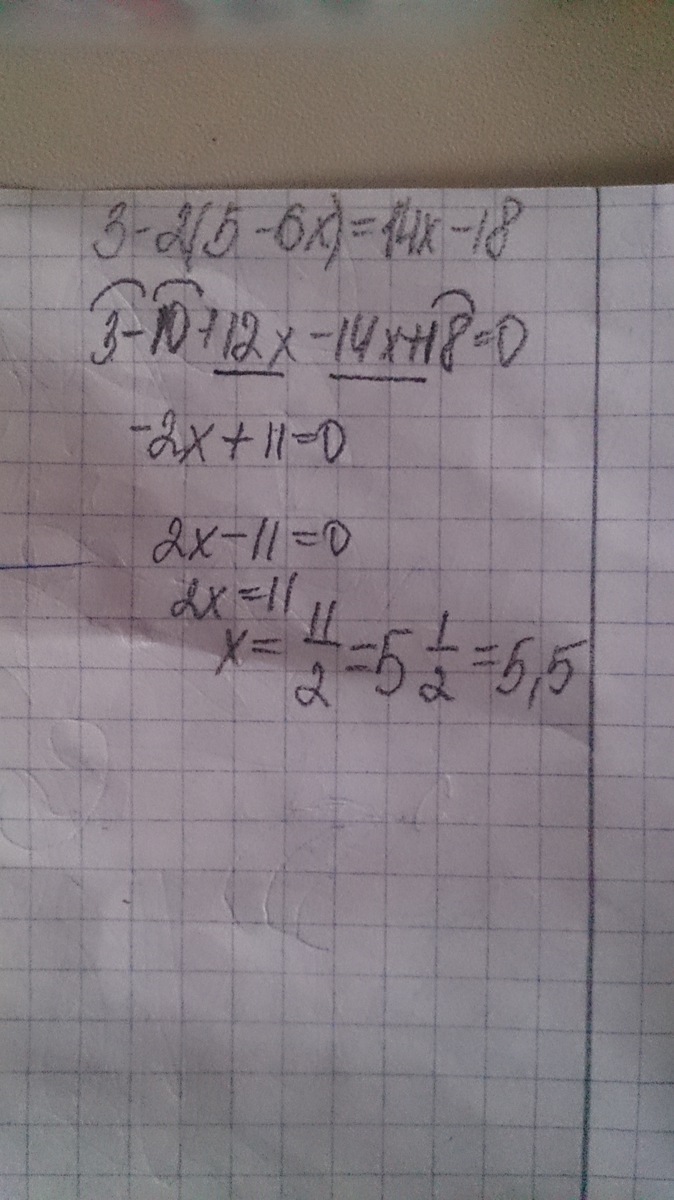 3-2(5-6x)=14x-18
3-10+12x-14x+18=0
-2x+11=0
2x-11=0
2x=11
x=11/2=5 1/2=5,5